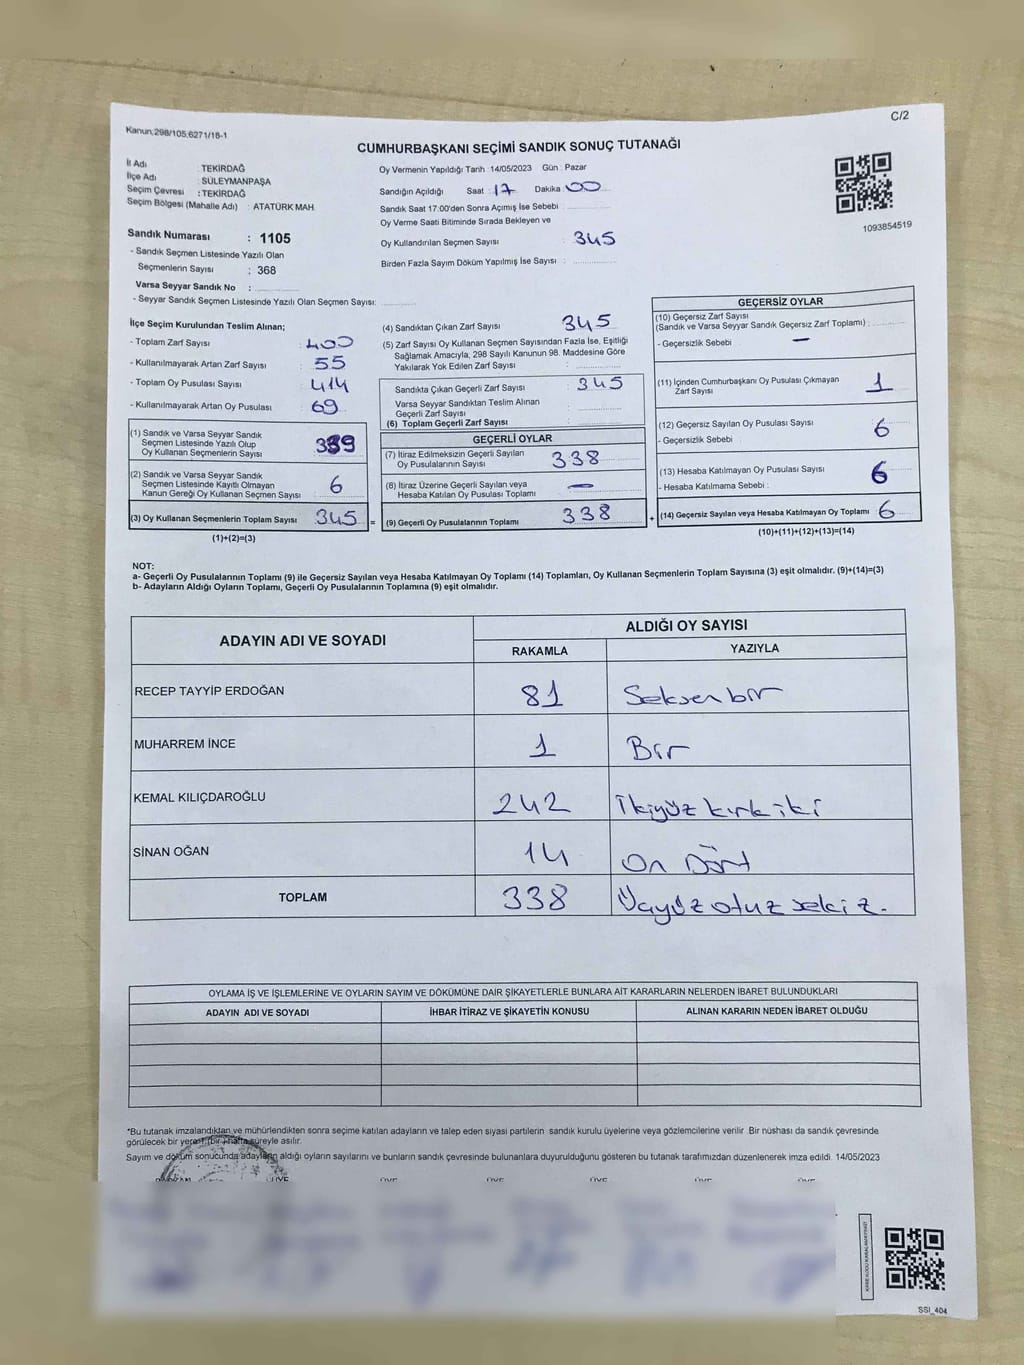 Kanun;298/105;6271/18-1
C/2
CUMHURBAŞKANI SEÇİMİ SANDIK SONUÇ TUTANAĞI
İl Adı : TEKİRDAĞ
İlçe Adı : SÜLEYMANPAŞA
Seçim Çevresi : TEKİRDAĞ
Seçim Bölgesi (Mahalle Adı) : ATATÜRK MAH.
Oy Vermenin Yapıldığı Tarih :14/05/2023 Gün : Pazar
Sandığın Açıldığı Saat : 17 Dakika : 00
Sandık Saat 17:00'den Sonra Açımış İse Sebebi :
Oy Verme Saati Bitiminde Sırada Bekleyen ve
Oy Kullandırılan Seçmen Sayısı : 345
Birden Fazla Sayım Döküm Yapılmış İse Sayısı :
1093854519
Sandık Numarası : 1105
- Sandık Seçmen Listesinde Yazılı Olan
Seçmenlerin Sayısı : 368
Varsa Seyyar Sandık No :
- Seyyar Sandık Seçmen Listesinde Yazılı Olan Seçmen Sayısı:
İlçe Seçim Kurulundan Teslim Alınan;
- Toplam Zarf Sayısı : 400
- Kullanılmayarak Artan Zarf Sayısı : 55
- Toplam Oy Pusulası Sayısı : 414
- Kullanılmayarak Artan Oy Pusulası : 69
(1) Sandık ve Varsa Seyyar Sandık
Seçmen Listesinde Yazılı Olup
Oy Kullanan Seçmenlerin Sayısı 339
(2) Sandık ve Varsa Seyyar Sandık
Seçmen Listesinde Kayıtlı Olmayan
Kanun Gereği Oy Kullanan Seçmen Sayısı 6
(3) Oy Kullanan Seçmenlerin Toplam Sayısı 345 =
(1)+(2)=(3)
(4) Sandıktan Çıkan Zarf Sayısı 345
(5) Zarf Sayısı Oy Kullanan Seçmen Sayısından Fazla İse, Eşitliği
Sağlamak Amacıyla, 298 Sayılı Kanunun 98. Maddesine Göre
Yakılarak Yok Edilen Zarf Sayısı :
Sandıkta Çıkan Geçerli Zarf Sayısı : 345
Varsa Seyyar Sandıktan Teslim Alınan
Geçerli Zarf Sayısı :
(6) Toplam Geçerli Zarf Sayısı :
GEÇERLİ OYLAR
(7) İtiraz Edilmeksizin Geçerli Sayılan
Oy Pusulalarının Sayısı 338
(8) İtiraz Üzerine Geçerli Sayılan veya
Hesaba Katılan Oy Pusulası Toplamı —
(9) Geçerli Oy Pusulalarının Toplamı 338 +
GEÇERSİZ OYLAR
(10) Geçersiz Zarf Sayısı
(Sandık ve Varsa Seyyar Sandık Geçersiz Zarf Toplamı) :
- Geçersizlik Sebebi : —
(11) İçinden Cumhurbaşkanı Oy Pusulası Çıkmayan
Zarf Sayısı 1
(12) Geçersiz Sayılan Oy Pusulası Sayısı 6
- Geçersizlik Sebebi :
(13) Hesaba Katılmayan Oy Pusulası Sayısı 6
- Hesaba Katılmama Sebebi :
(14) Geçersiz Sayılan veya Hesaba Katılmayan Oy Toplamı 6
(10)+(11)+(12)+(13)=(14)
NOT:
a- Geçerli Oy Pusulalarının Toplamı (9) ile Geçersiz Sayılan veya Hesaba Katılmayan Oy Toplamı (14) Toplamları, Oy Kullanan Seçmenlerin Toplam Sayısına (3) eşit olmalıdır. (9)+(14)=(3)
b- Adayların Aldığı Oyların Toplamı, Geçerli Oy Pusulalarının Toplamına (9) eşit olmalıdır.
ADAYIN ADI VE SOYADI ALDIĞI OY SAYISI
RAKAMLA YAZIYLA
RECEP TAYYİP ERDOĞAN 81 Seksen bir
MUHARREM İNCE 1 Bir
KEMAL KILIÇDAROĞLU 242 İkiyüz kırk iki
SİNAN OĞAN 14 On Dört
TOPLAM 338 Üçyüz otuz sekiz.
OYLAMA İŞ VE İŞLEMLERİNE VE OYLARIN SAYIM VE DÖKÜMÜNE DAİR ŞİKAYETLERLE BUNLARA AİT KARARLARIN NELERDEN İBARET BULUNDUKLARI
ADAYIN ADI VE SOYADI İHBAR İTİRAZ VE ŞİKAYETİN KONUSU ALINAN KARARIN NEDEN İBARET OLDUĞU
*Bu tutanak imzalandıktan ve mühürlendikten sonra seçime katılan adayların ve talep eden siyasi partilerin sandık kurulu üyelerine veya gözlemcilerine verilir. Bir nüshası da sandık çevresinde
görülecek bir yere 1 (bir) hafta süreyle asılır.
Sayım ve döküm sonucunda adayların aldığı oyların sayılarını ve bunların sandık çevresinde bulunanlara duyurulduğunu gösteren bu tutanak tarafımızdan düzenlenerek imza edildi. 14/05/2023
SSI_404